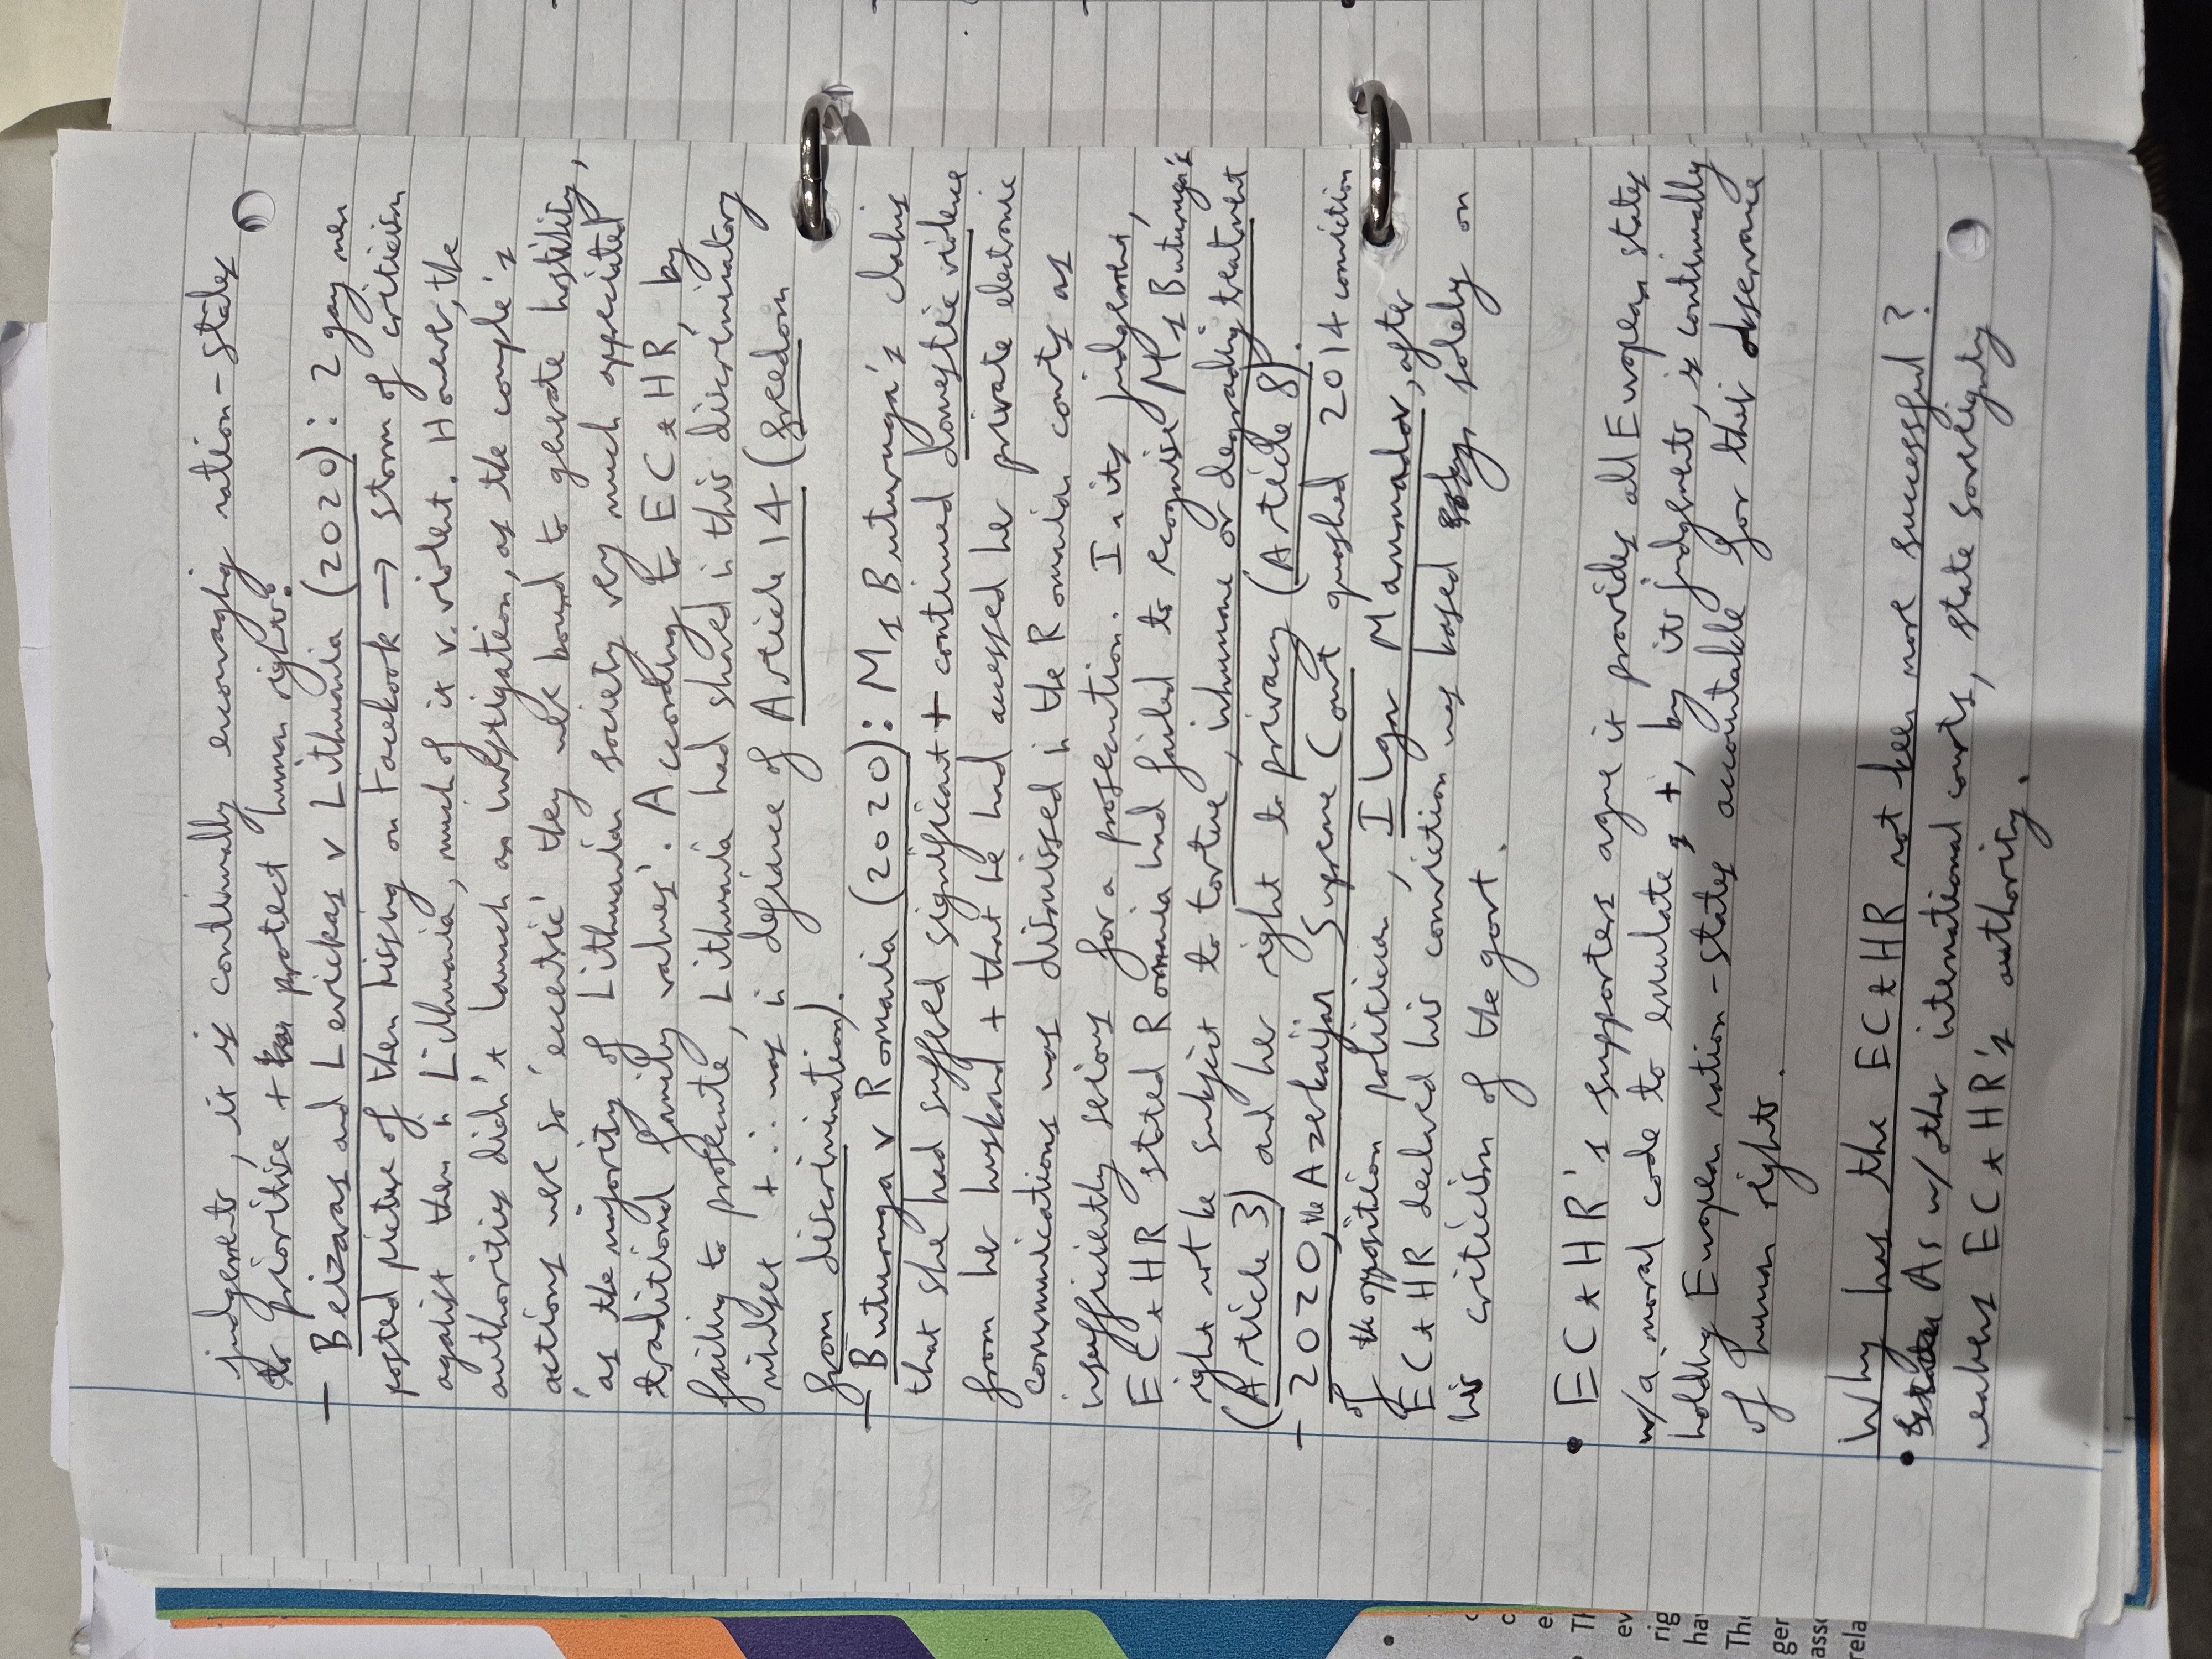 judgements, it is continually encouraging nation-states
to prioritise + protect human rights:
- Beizaras and Levickas v Lithuania (2020): 2 gay men
posted picture of them kissing on Facebook → storm of criticism
against them in Lithuania, much of it v. violent. However, the
authorities didn't launch an investigation, as the couple's
actions were so 'eccentric' they were bound to generate hostility,
'as the majority of Lithuanian society very much appreciated
traditional family values'. According to ECtHR, by
failing to prosecute, Lithuania had shared in this discriminatory
mindset + ∴ was in defiance of Article 14 (freedom
from discrimination).
- Buturuga v Romania (2020): Ms Buturuga's claims
that she had suffered significant + continued domestic violence
from her husband + that he had accessed her private electronic
communications was dismissed in the Romanian courts as
insufficiently serious for a prosecution. In its judgement,
ECtHR stated Romania had failed to recognise Ms Buturuga's
right not be subject to torture, inhumane or degrading treatment
(Article 3) and her right to privacy (Article 8).
- 2020, the Azerbaijan Supreme Court quashed 2014 conviction
of the opposition politician, Ilgar Mammadov, after
ECtHR declared his conviction was based solely on
his criticism of the govt.
• ECtHR's supporters argue it provides all European states
w/a moral code to emulate, +, by its judgements, is continually
holding European nation-states accountable for their observance
of human rights.
Why has the ECtHR not been more successful?
• As w/ other international courts, state sovereignty
weakens ECtHR's authority.
c
c
e
Th
ev
rig
ha
The
ger
asso
rela